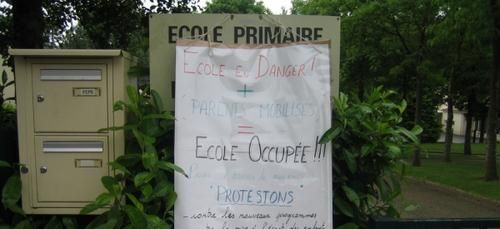 ECOLE PRIMAIRE
ECOLE EN DANGER !
+
PARENTS MOBILISÉS
=
ECOLE OCCUPÉE !!!
"PROTESTONS"
- contre les nouveaux programmes